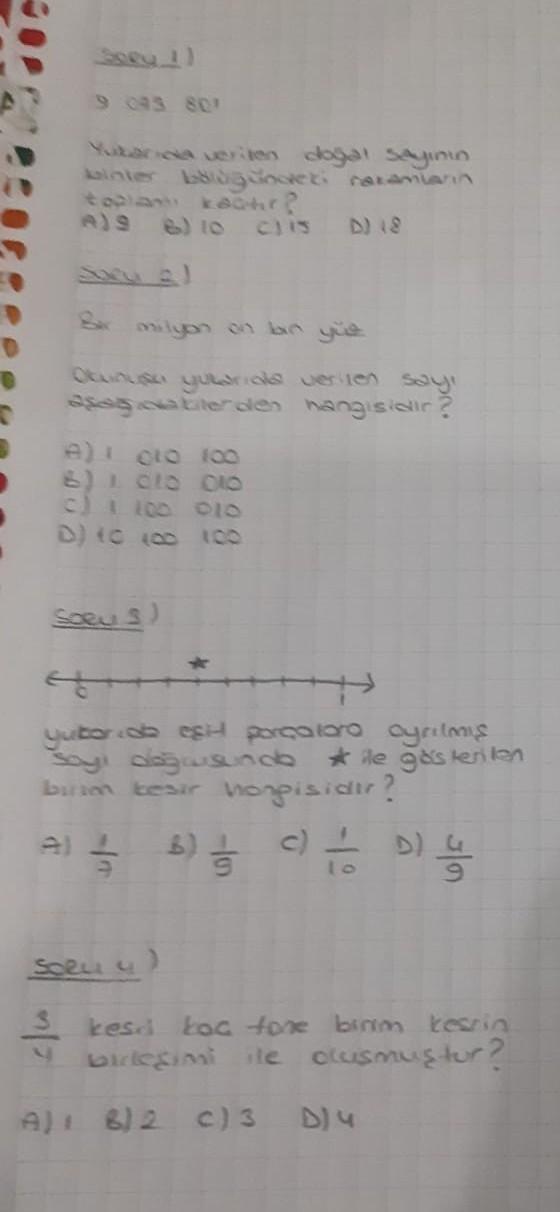 Soru 1)
9 073 801
Yukarıda verilen doğal sayının
binler bölüğündeki rakamların
toplamı kaçtır?
A) 9 B) 10 C) 15 D) 18
Soru 2)
Bir milyon on bin yüz
Okunuşu yukarıda verilen sayı
aşağıdakilerden hangisidir?
A) 1 010 100
B) 1 010 010
C) 1 100 010
D) 10 100 100
Soru 3)
0 1
Yukarıda eşit parçalara ayrılmış
sayı doğrusunda ★ ile gösterilen
birim kesir hangisidir?
A) 1/7 B) 1/9 C) 1/10 D) 4/9
Soru 4)
3/4 kesri kaç tane birim kesrin
birleşimi ile oluşmuştur?
A) 1 B) 2 C) 3 D) 4